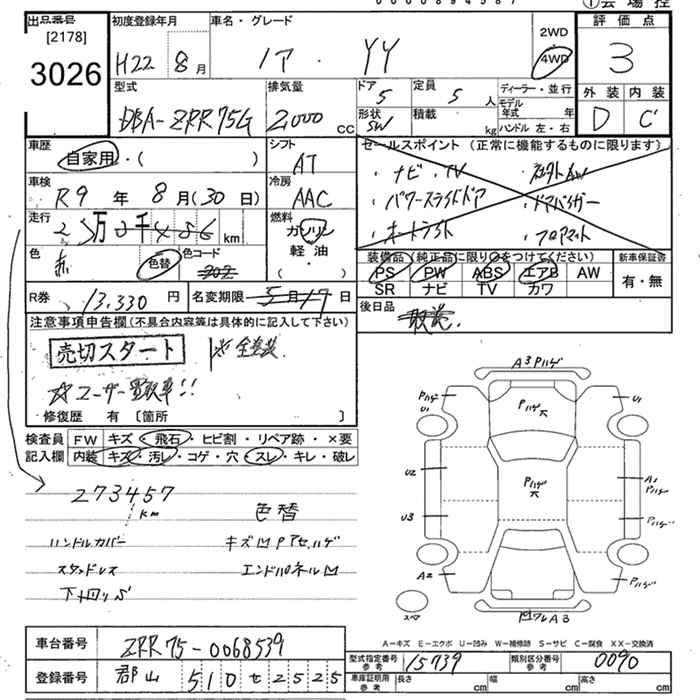 ①会場控
出品番号
[2178]
3026
初度登録年月
H22 8月
車名・グレード
ノア・YY
2WD
4WD
評価点
3
外装 内装
D C
型式
DBA-ZRR75G
排気量
2000 CC
ドア 5
定員 5 人
形状 SW
積載 kg
ディーラー・並行
モデル年式 年
ハンドル 左・右
車歴
自家用・( )
シフト
AT
セールスポイント(正常に機能するものに限ります)
・ナビ・TV
・パワースライドドア ・ドアバイザー
・オートライト ・フロアマット
車検
R9年 8月(30日)
冷房
AAC
走行
万 千 km
燃料
ガソリン
軽油
・( )
色
赤
色替
色コード
202
装備品(純正品に限り○をつけてください)
PS PW ABS エアB AW
SR ナビ TV カワ
新車保証書
有・無
R券 13,330円
名変期限 5月17日
後日品
取説.
注意事項申告欄(不具合内容等は具体的に記入して下さい)
売切スタート
※全塗装
☆ユーザー買取車!!
修復歴 有〔箇所 〕
検査員記入欄
FW キズ・飛石・ヒビ割・リペア跡・×要
内装 キズ・汚レ・コゲ・穴・スレ・キレ・破レ
273457 km
色替
ハンドルカバー
キズ凹PアセハゲP
スタッドレス
エンドパネル凹
下廻りS
A3 Pハゲ
Pハゲ U1
Pハゲ 大
U1
U2
Pハゲ 大
A1 Pハゲ
U3
Pハゲ
A2
Pハゲ
スペア
凹フレA3
A-キズ E-エクボ U-凹み W-補修跡 S-サビ C-腐食 XX-交換済
車台番号 ZRR75-0068539
登録番号 郡山 510 せ 2525
型式指定番号 参考 15739
類別区分番号 参考 0090
車庫証明用 参考 長さ cm 幅 cm 高さ cm